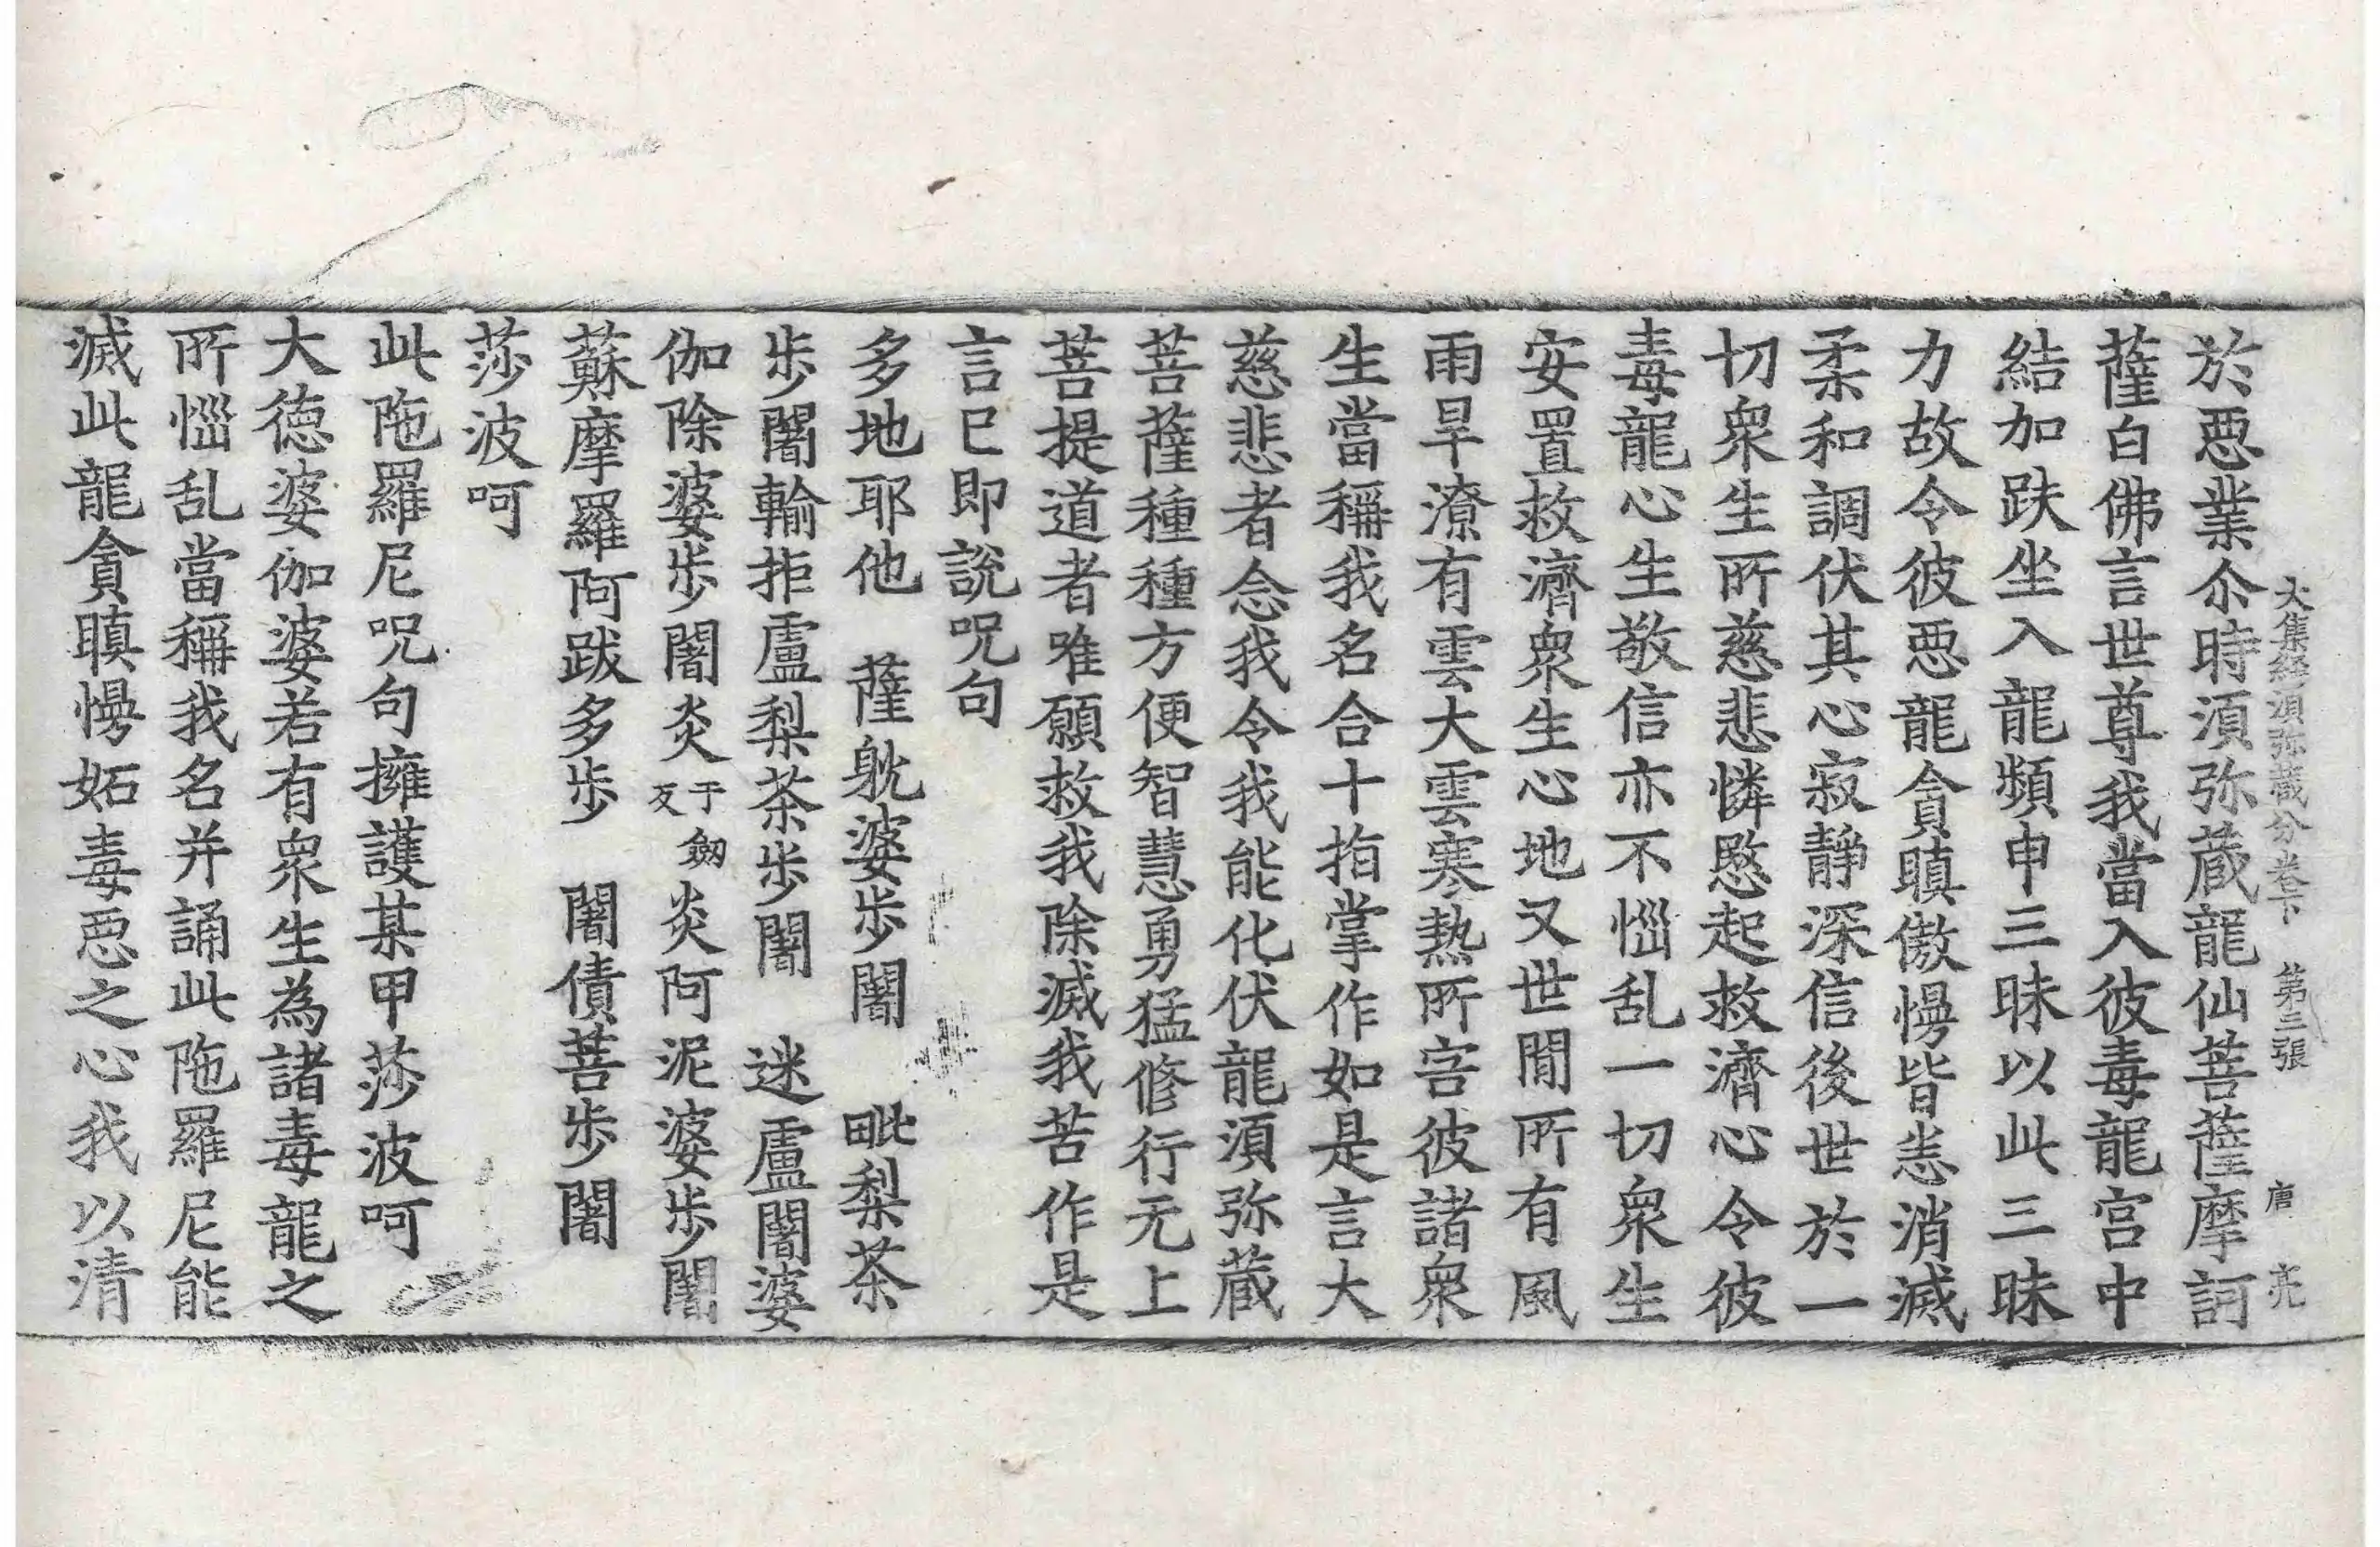 大集経湏弥藏分卷下 第三張 唐 亮
於𢙣業尒時湏弥蔵龍仙菩薩摩訶
薩白佛言世尊我當入彼毒龍宫中
結加趺坐入龍頻申三昧以此三昧
力故令彼𢙣龍貪瞋傲慢皆悉消滅
柔和調伏其心寂靜深信後世於一
切衆生所慈悲憐愍起救濟心令彼
毒龍心生敬信亦不惱乱一切衆生
安置救濟衆生心地又世間所有風
雨旱潦有雲大雲寒熱所害彼諸衆
生當稱我名合十指掌作如是言大
慈悲者念我令我能化伏龍湏弥蔵
菩薩種種方便智慧勇猛修行无上
菩提道者唯願救我除滅我苦作是
言已即說呪句
多地耶他 薩躭婆步闍 毗梨茶
步闍輸拒盧梨茶步闍 迷盧闍婆
伽除婆步闍炎于劒反炎阿泥婆步闍
蘇摩羅阿跋多步 闍債菩步闍
莎波呵
此陁羅尼呪句擁護某甲莎波呵
大德婆伽婆若有衆生為諸毒龍之
所惱乱當稱我名并誦此陁羅尼能
滅此龍貪瞋慢妬毒𢙣之心我以清